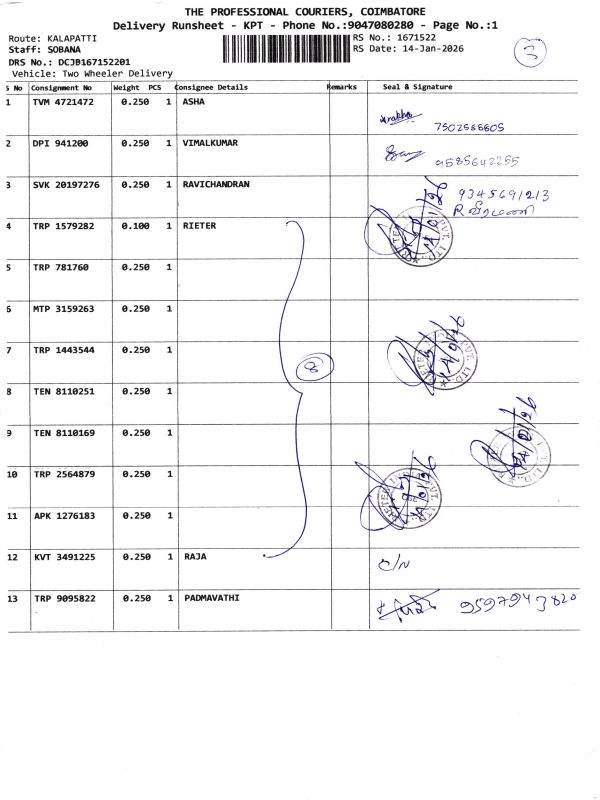 THE PROFESSIONAL COURIERS, COIMBATORE
Delivery Runsheet - KPT - Phone No.:9047080280 - Page No.:1
Route: KALAPATTI
RS No.: 1671522
Staff: SOBANA
RS Date: 14-Jan-2026
3
DRS No.: DCJB167152201
Vehicle: Two Wheeler Delivery
S No Consignment No Weight PCS Consignee Details Remarks Seal & Signature
1 TVM 4721472 0.250 1 ASHA
7502586605
2 DPI 941200 0.250 1 VIMALKUMAR
9585642255
3 SVK 20197276 0.250 1 RAVICHANDRAN
9345691213
4 TRP 1579282 0.100 1 RIETER
14/01/26
5 TRP 781760 0.250 1
6 MTP 3159263 0.250 1
7 TRP 1443544 0.250 1
14/01/26
8
8 TEN 8110251 0.250 1
9 TEN 8110169 0.250 1
14/01/26
10 TRP 2564879 0.250 1
14/01/26
11 APK 1276183 0.250 1
12 KVT 3491225 0.250 1 RAJA
C/N
13 TRP 9095822 0.250 1 PADMAVATHI
9597943820